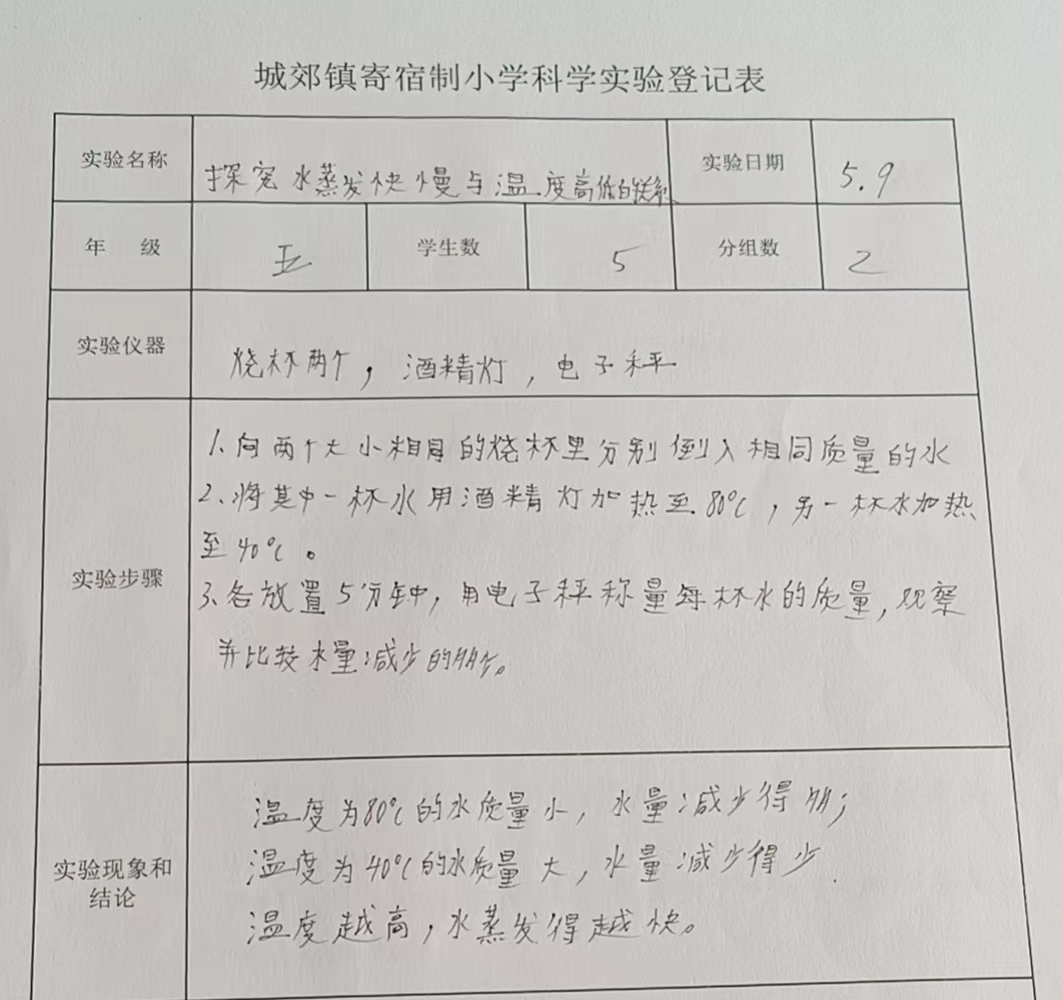 城郊镇寄宿制小学科学实验登记表
实验名称
探究水蒸发快慢与温度高低的关系
实验日期
5.9
年 级
五
学生数
5
分组数
2
实验仪器
烧杯两个，酒精灯，电子秤
实验步骤
1.向两个大小相同的烧杯里分别倒入相同质量的水
2、将其中一杯水用酒精灯加热至80℃，另一杯水加热
至40℃。
3、各放置5分钟，用电子秤称量每杯水的质量，观察
并比较水量减少的多少。
实验现象和
结论
温度为80℃的水质量小，水量减少得多；
温度为40℃的水质量大，水量减少得少
温度越高，水蒸发得越快。